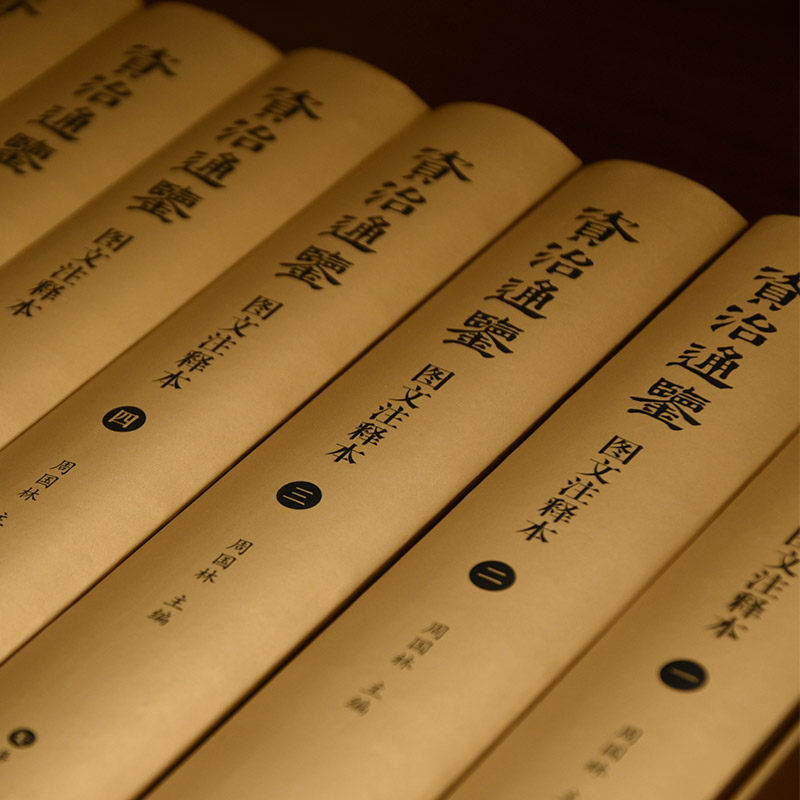 資治通鑒
資治通鑒
图文注释本
資治通鑒
图文注释本
四
周国林 主
資治通鑒
图文注释本
三
周国林 主编
資治通鑒
图文注释本
二
周国林 主编
文注释本
一
周国林